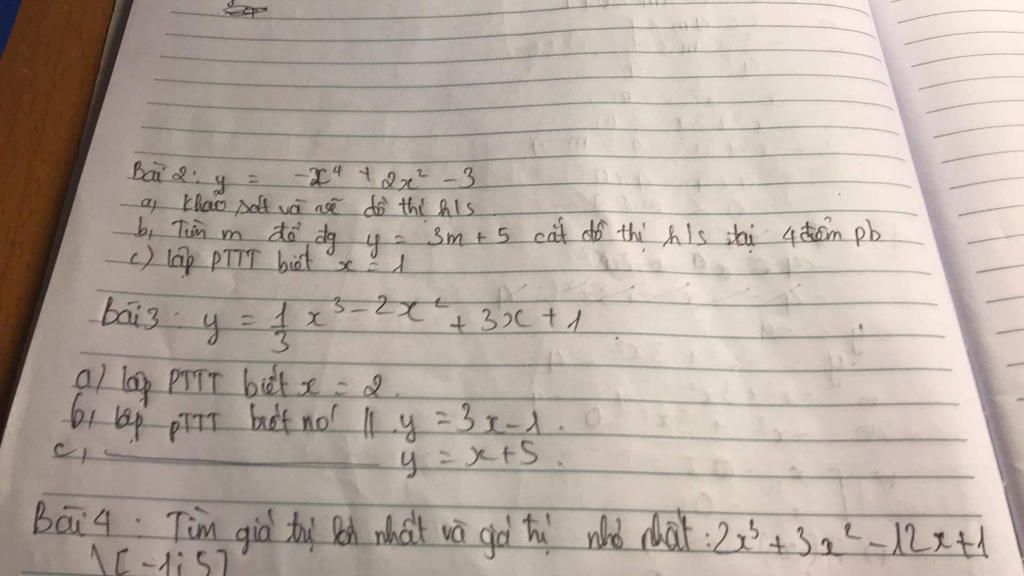 Bài 2: y = -x⁴ + 2x² - 3
a, Khảo sát và vẽ đồ thị h/s
b, Tìm m để đg y = 3m + 5 cắt đồ thị h/s tại 4 điểm pb
c) lập PTTT biết x = 1
Bài 3: y = 1/3 x³ - 2x² + 3x + 1
a) lập PTTT biết x = 2.
b, lập pTTT biết nó // y = 3x - 1.
c, ———— y = x + 5.
Bài 4: Tìm giá trị lớn nhất và giá trị nhỏ nhất: 2x³ + 3x² - 12x + 1
\[-1; 5]